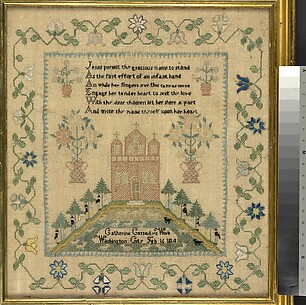 Jesus permit thy gracious name to stand
As the first effort of an infant hand
And while her fingers oer this canvas move
Engage her tender heart to seek thy love
With thy dear children let her share a part
And write thy name thyself upon her heart
Catherine Work
Washington City Feb 14 1814